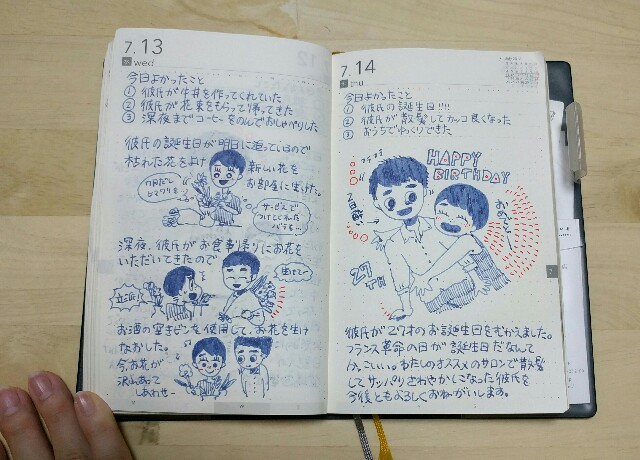 7.13
wed
今日よかったこと
① 彼氏が牛丼を作ってくれていた
② 彼氏が花束をもらって帰ってきた
③ 深夜までコーヒーをのんでおしゃべりした
彼氏の誕生日が明日に迫っているので
枯れた花をよけ
新しい花を
お部屋に生けた。
7月だし
ヒマワリを…
サービスで
つけてくれた
バラも…
深夜、彼氏がお食事帰りにお花を
いただいてきたので
立派!
お酒の空きビンを使用して、お花を生け
なおした。
今、お花が
沢山あって
しあわせー
7.14
thu
今日よかったこと
① 彼氏の誕生日!!!
② 彼氏が散髪してカッコ良くなった
③ おうちでゆっくりできた
HAPPY
BIRTHDAY
27TH
彼氏が27才のお誕生日をむかえました。
フランス革命の日が誕生日だなんて
かっこいい。わたしのオススメのサロンで散髪
してサッパリさわやかになった彼氏を
今後ともよろしくおねがいします。
7